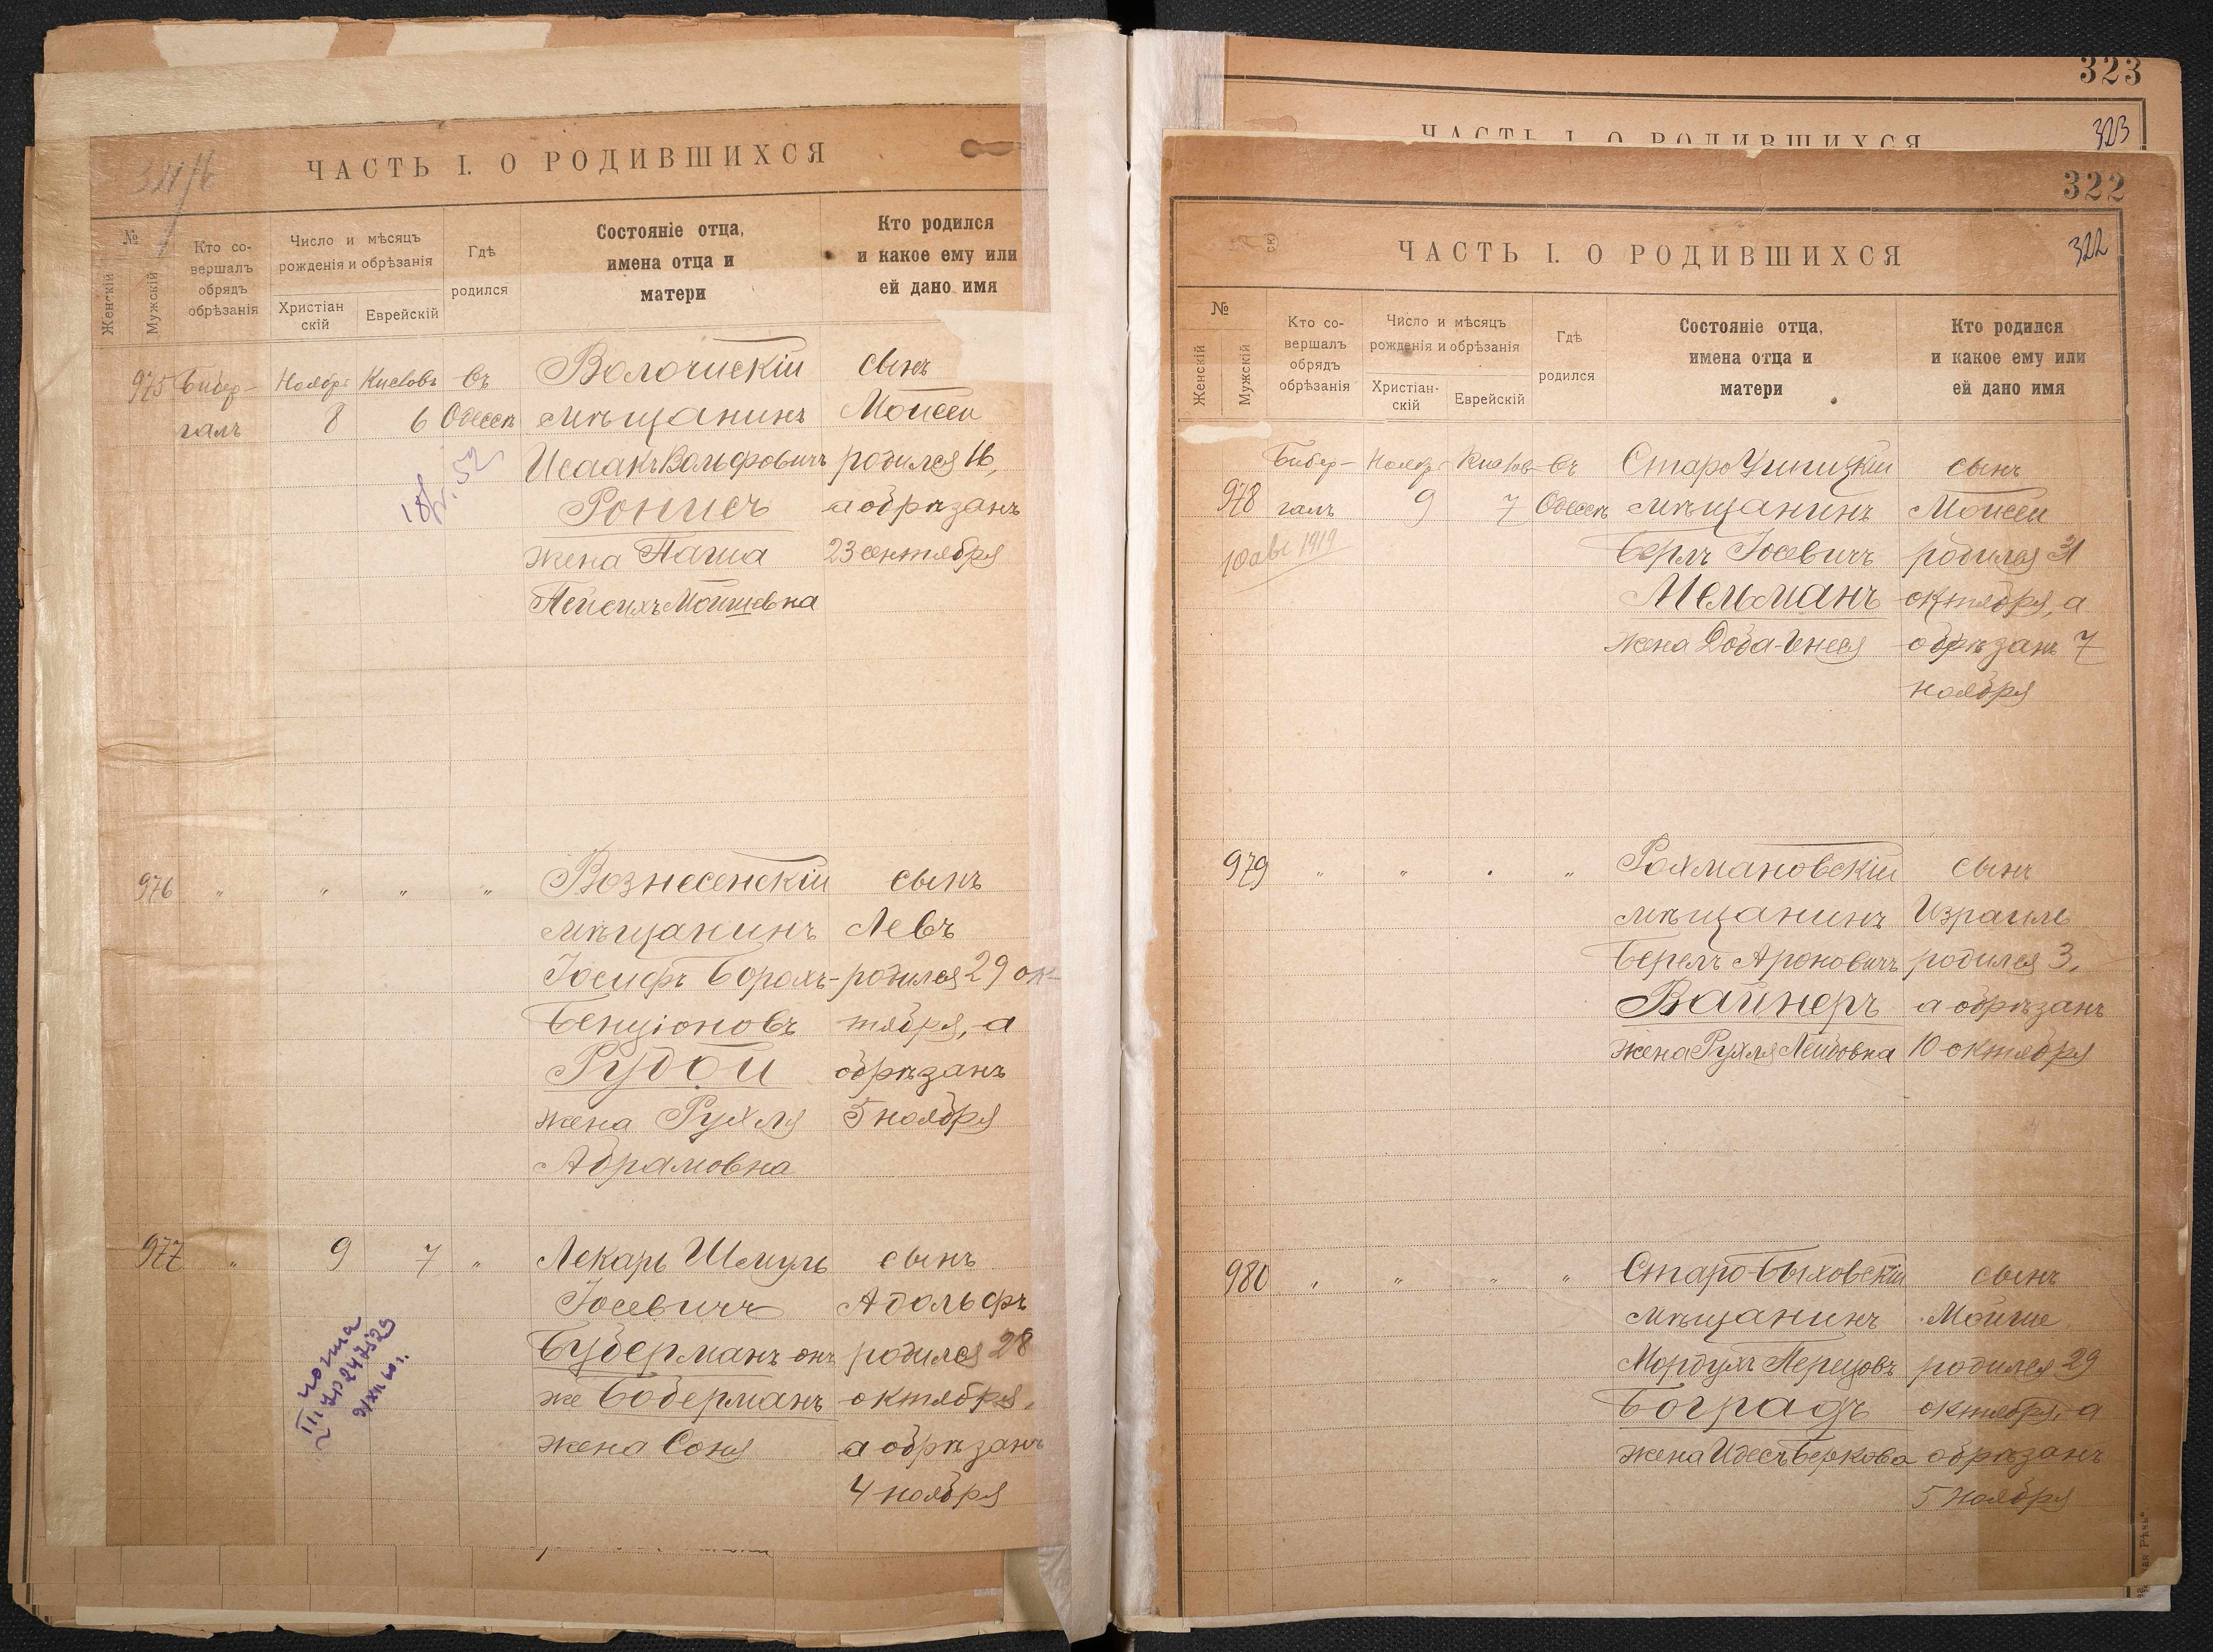 ЧАСТЬ I. О РОДИВШИХСЯ
№
Женскій
Мужскій
Кто со-
вершалъ
обрядъ
обрѣзанія
Число и мѣсяцъ
рожденія и обрѣзанія
Христіан
скій
Еврейскій
Гдѣ
родился
Состояніе отца,
имена отца и
матери
Кто родился
и какое ему или
ей дано имя
975 Бибер- Ноябрь Кислевъ въ Волочискій сынъ
галъ 8 6 Одессѣ мѣщанинъ Моисей
Исаакъ Вольфовичъ родился 16,
Ронисъ а обрѣзанъ
жена Паша 23 сентября
Пейсихъ Мошковна
976 " " " " Вознесенскій сынъ
мѣщанинъ Левъ
Іосифъ Борохъ- родился 29 ок-
Бенціоновъ тября, а
Рудой обрѣзанъ
жена Рухля 5 ноября
Абрамовна
977 " 9 7 " Лекарь Шмуль сынъ
Іосевичъ Адольфъ
Буберманъ онъ родился 28
же Боберманъ октября,
жена Соня а обрѣзанъ
4 ноября
323
ЧАСТЬ I. О РОДИВШИХСЯ
323
322
ЧАСТЬ I. О РОДИВШИХСЯ
322
№
Женскій
Мужскій
Кто со-
вершалъ
обрядъ
обрѣзанія
Число и мѣсяцъ
рожденія и обрѣзанія
Христіан-
скій
Еврейскій
Гдѣ
родился
Состояніе отца,
имена отца и
матери
Кто родился
и какое ему или
ей дано имя
Бибер- Ноябрь Кислев въ СтароУшицкій сынъ
978 галъ 9 7 Одессѣ мѣщанинъ Моисей
10 авг 1919
Берлъ Іосевичъ родился 31
Мельманъ октября, а
жена Доба-Инея обрѣзанъ 7
ноября
979 " " " " Рахмановскій сынъ
мѣщанинъ Израиль
Берелъ Ароновичъ родился 3,
Вайнеръ а обрѣзанъ
жена Рухля Лейбовна 10 октября
980 " " " " Старо-Быховскій сынъ
мѣщанинъ Мойше
Мордухъ Перецовъ родился 29
Боградъ октября, а
жена Идесъ Беркова обрѣзанъ
5 ноября